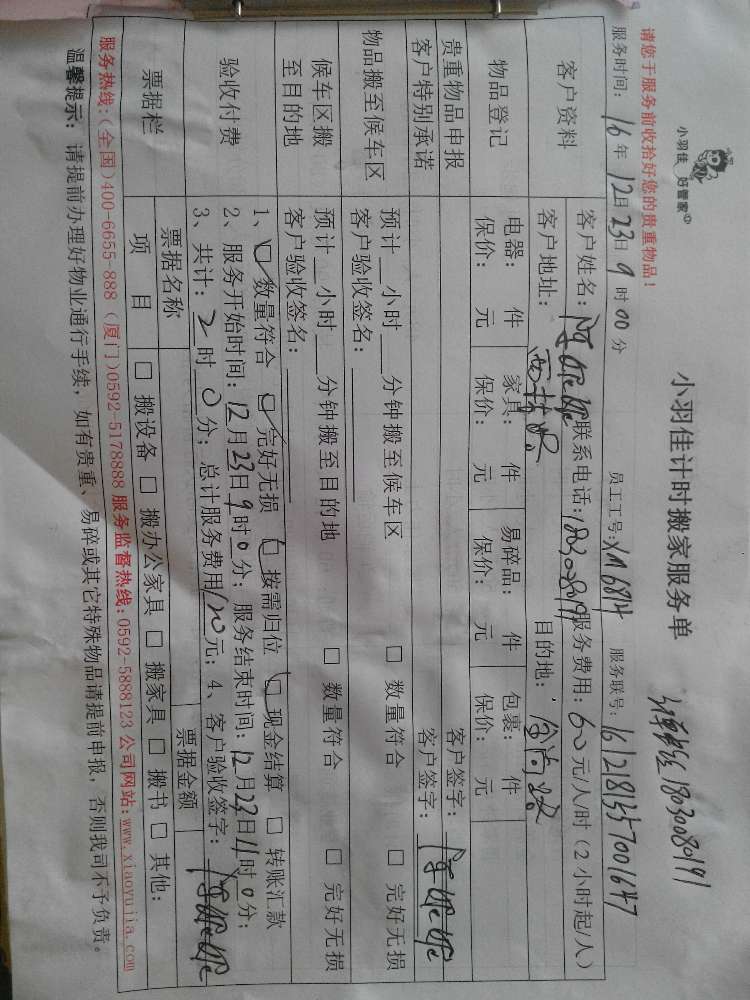 小羽佳 好管家
小羽佳计时搬家服务单
18030080191
请您于服务前收拾好您的贵重物品！
服务时间：16年12月23日9时00分 员工工号：XM6814 服务联号：1612181557001647
客户资料
客户姓名： 联系电话： 服务费用：60元/人/时（2小时起/人）
客户地址： 目的地：
物品登记
电器： 件 家具： 件 易碎品： 件 包裹： 件
保价： 元 保价： 元 保价： 元 保价： 元
贵重物品申报 客户签字：
客户特别承诺 客户签字：
物品搬至候车区
预计__小时__分钟搬至候车区 □ 数量符合 □ 完好无损
客户验收签名：
候车区搬至目的地
预计__小时__分钟搬至目的地 □ 数量符合 □ 完好无损
客户验收签名：
验收付费
1、☑ 数量符合 ☑ 完好无损 ☑ 按需归位 ☑ 现金结算 □ 转账汇款
2、服务开始时间：12月23日9时0分；服务结束时间：12月23日11时0分；
3、共计：2时0分；总计服务费用120元；4、客户验收签字：
票据栏
票据名称 票据金额
项 目 □ 搬设备 □ 搬办公家具 □ 搬家具 □ 搬书 □ 其他：
服务热线：（全国）400-6655-888（厦门）0592-5178888 服务监督热线：0592-5888123 公司网站：www.xiaoyujia.com
温馨提示：请提前办理好物业通行手续，如有贵重、易碎或其它特殊物品请提前申报，否则我司不予负责。